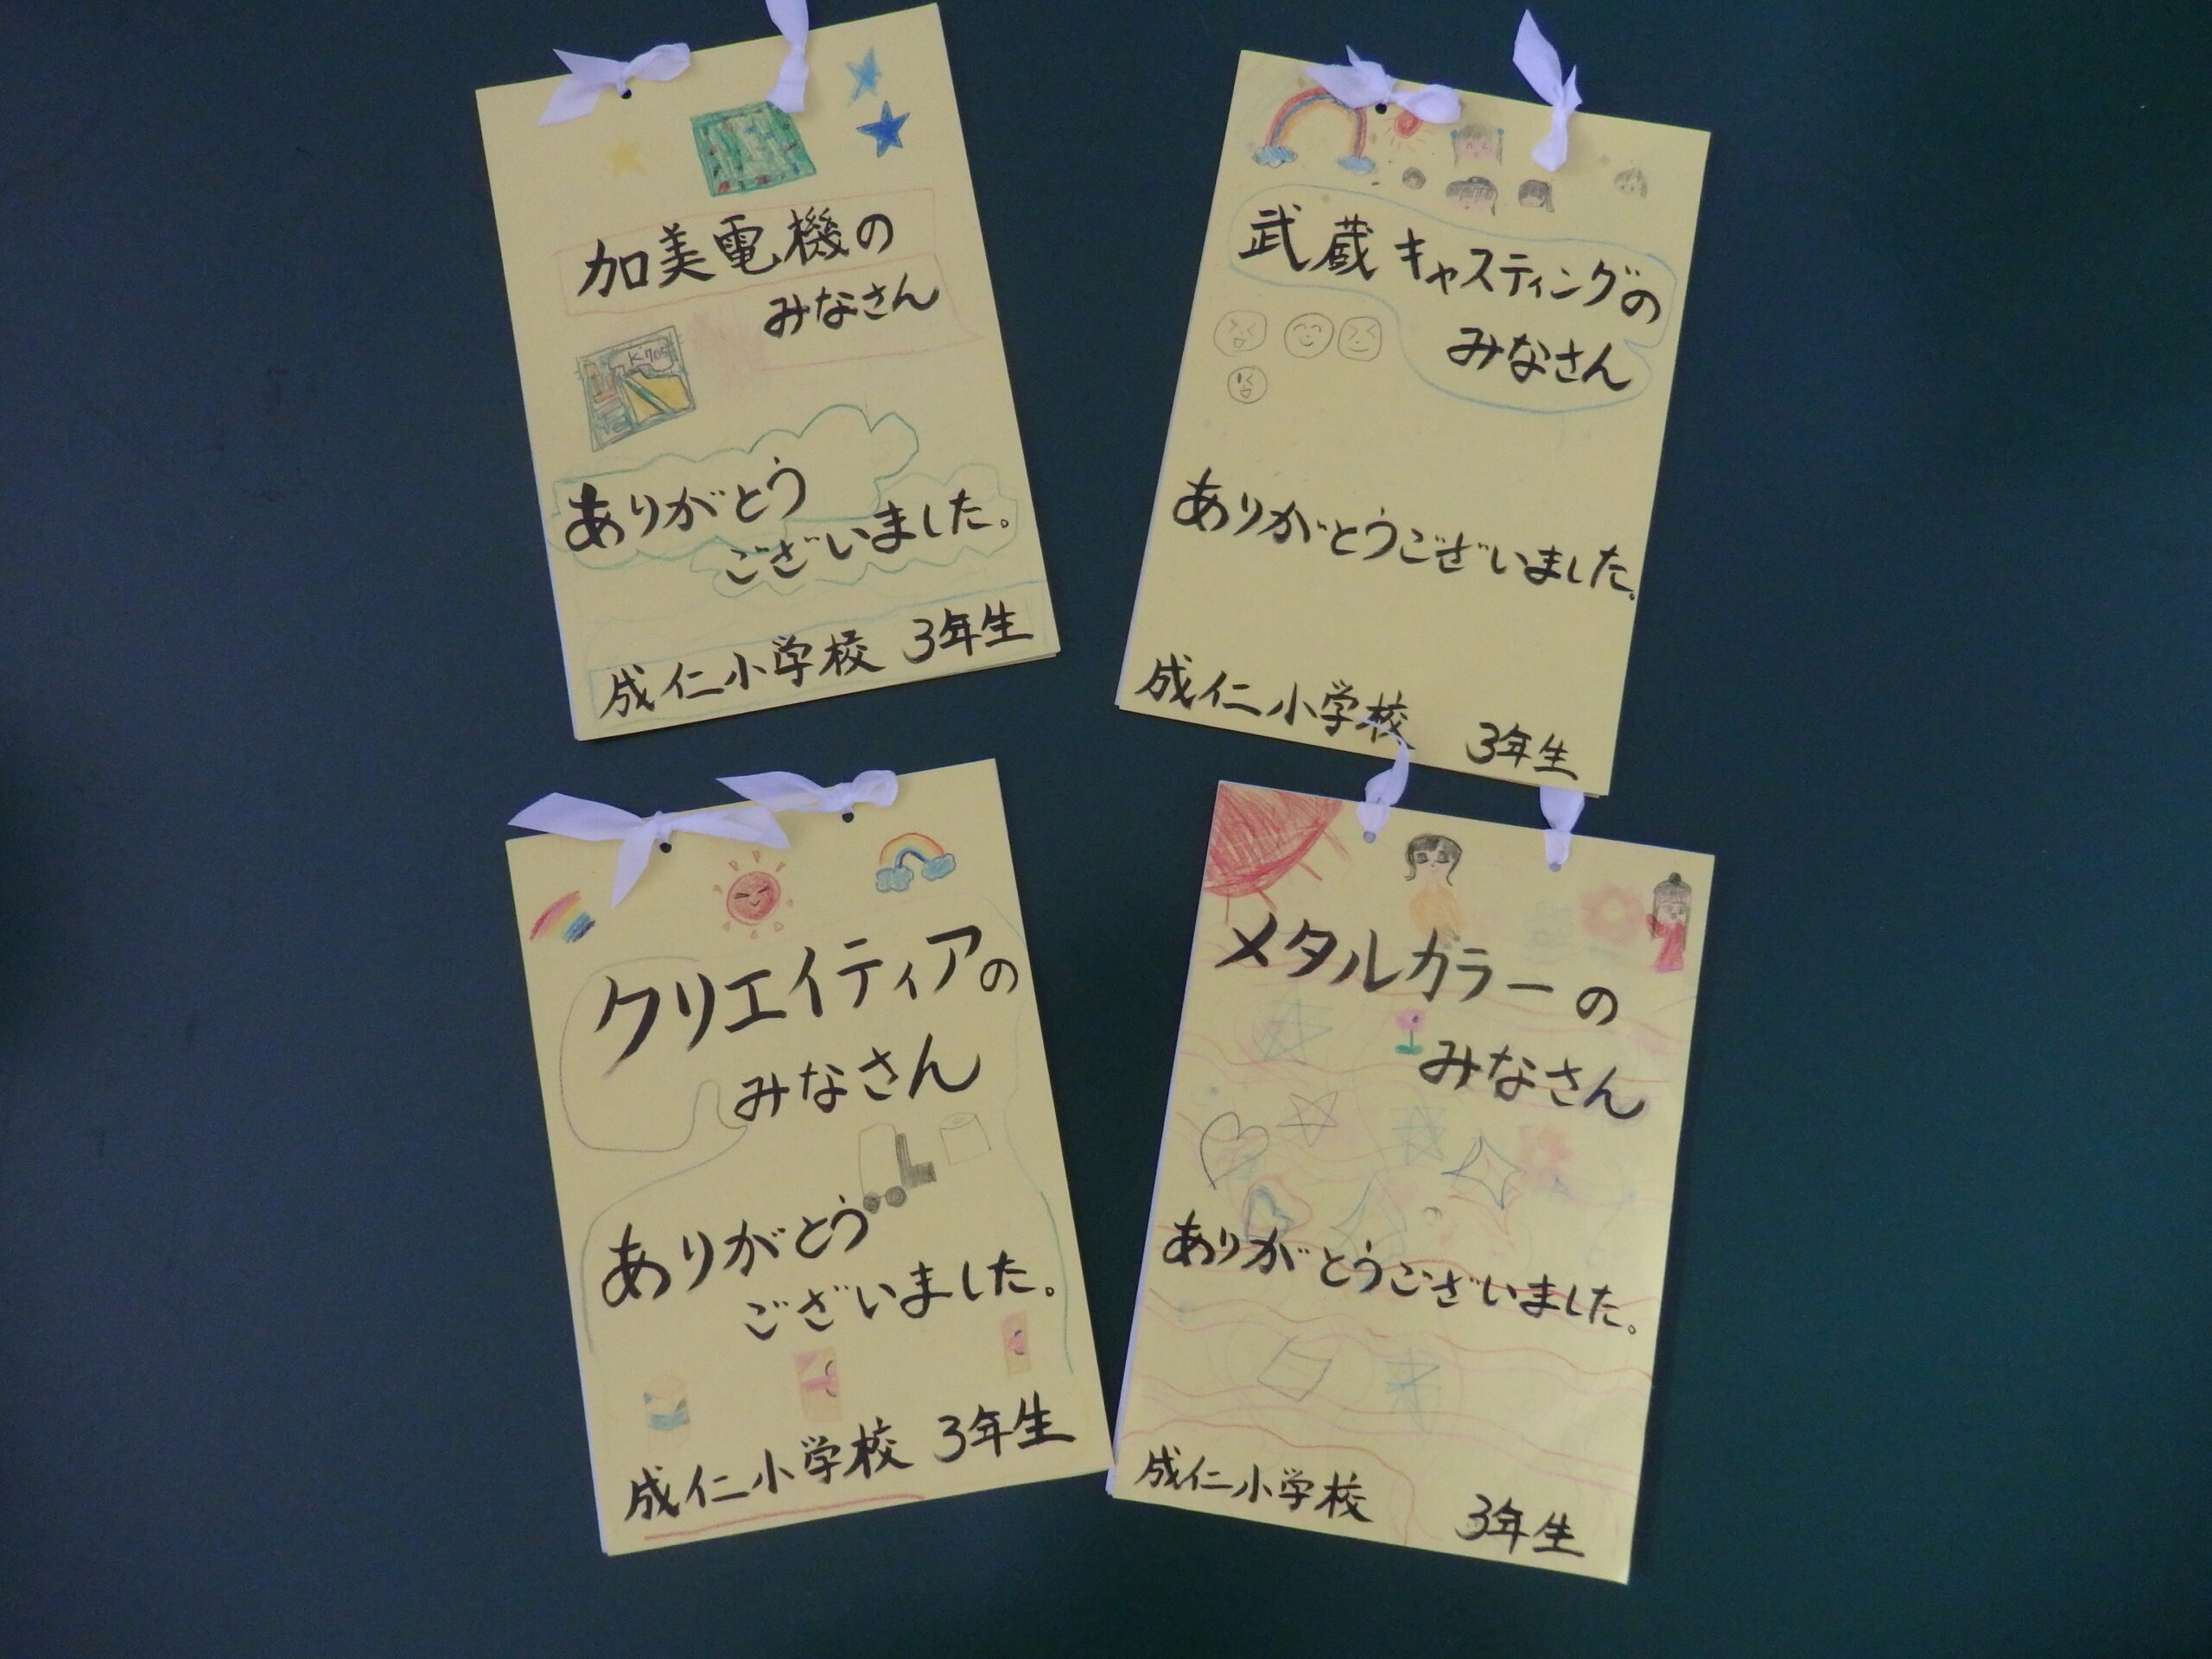 加美電機の
みなさん
K-705
ありがとう
ございました。
成仁小学校 3年生
武蔵キャスティングの
みなさん
ありがとうございました。
成仁小学校 3年生
クリエイティアの
みなさん
ありがとう
ございました。
成仁小学校 3年生
メタルカラーの
みなさん
ありがとうございました。
成仁小学校 3年生